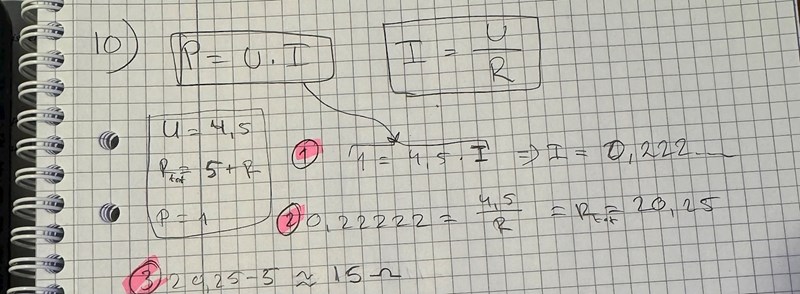 10) P = U · I    I = U/R
U = 4,5
R_tot = 5 + R
P = 1
① 1 = 4,5 · I ⇒ I = 0,222...
② 0,22222 = 4,5/R = R_tot = 20,25
③ 20,25-5 ≈ 15 Ω